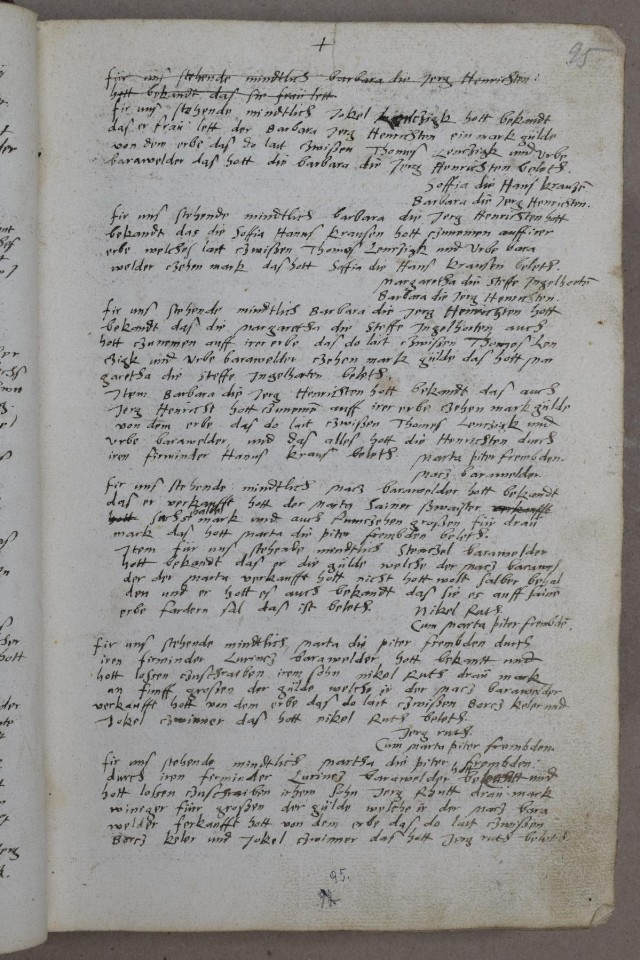 95
+
für uns stehende mindtlich barbara die Jerg Henrichten
hott bekandt das sie frau lett
für uns stehende mindtlich Jokel Lenczigk hott bekandt
das er frau lett der Barbara Jerg Henrichten ein mark gülde
von dem erbe das do lait czwißen Thomes Lenczigk und Urbe
barawelder das hott die barbara die Jerg Henrichten beleth.
Soffia die Hans Krausen
Barbara die Jerg Henrichten.
für uns stehende mindtlich barbara die Jerg Henrichten hott
bekandt das die Soffia Hanns Krausen hott czunemen auff irer
erbe welches lait czwißen Thomes Lenczigk und Urbe bara
welder czehen mark das hott Soffia die Hans Krausen beleth.
Margaretha die Steffe Ingelhorten
Barbara die Jerg Henrichten.
für uns stehende mindtlich Barbara die Jerg Henrichten hott
bekandt das die Margaretha die Steffe Ingelhorten auch
hott czunemen auff irer erbe das do lait czwißen Thomes Len
czigk und Urbe barawelder czehen mark gülde das hott Mar
garetha die Steffe Ingelhorten beleth.
Item Barbara die Jerg Henrichten hott bekandt das auch
Jerg Henricht hott czunemen auff irer erbe czehen mark gülde
von dem erbe das do lait czwißen Thomes Lenczigk und
Urbe barawelder, und das alles hott die Henrichten durch
iren firminder Hanns Kraus beleth. Marta piter frembden.
Macz barawelder.
für uns stehende mindtlich Macz barawelder hott bekandt
das er verkaufft hott der Marta sainer schwaster verkaufft
hott sechst halbe mark und auch funczehen großen für drau
mark das hott Marta die piter frembden beleth.
Item für uns stehende mindtlich Stenczel barawelder
hott bekandt das er die gülde welche der Macz barawel
der der Marta verkaufft hott nicht hott wolt salber behal
den und er hott es auch bekandt das sie es auff saine
erbe fordern sal das ist beleth. Nikel Ruth.
Cum Marta piter frembden.
für uns stehende mindtlich Marta die piter frembden durch
iren firminder Lurincz barawelder hott bekantt und
hott loßen czuschraiben irem sohn nikel Ruth drau mark
an finff großen der gülde welche ir der Macz barawelder
verkaufft hott von dem erbe das do lait czwißen Borcz keler und
Jokel czwinner das hott nikel Ruth beleth.
Jerg ruth.
Cum Marta piter frembden.
für uns stehende mindtlich Martha die piter frembden:
durch iren firminder Lurincz barawelder hott bekantt und
hott loßen czuschraiben irhem sohn Jerg Rhutt drau mark
winiger fünr großen der gülde welche ir der Macz bara
welder ferkaufft hott von dem erbe das do lait czwißen
Borcz keler und Jokel czwinner das hott Jerg ruth beleth.
95.